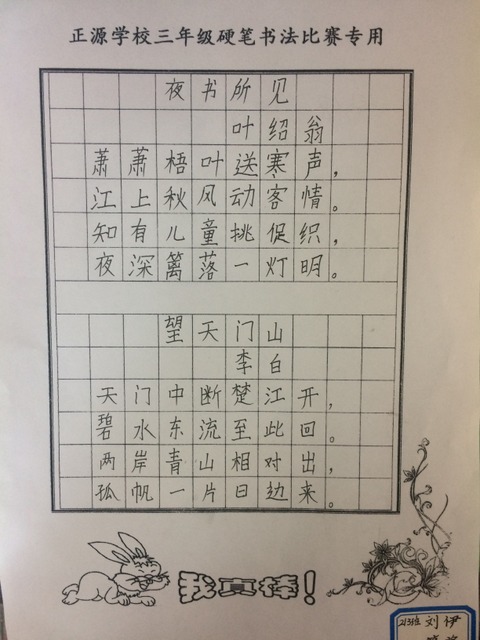 正源学校三年级硬笔书法比赛专用
夜书所见
叶绍翁
萧萧梧叶送寒声，
江上秋风动客情。
知有儿童挑促织，
夜深篱落一灯明。
望天门山
李白
天门中断楚江开，
碧水东流至此回。
两岸青山相对出，
孤帆一片日边来。
我真棒！
刘伊